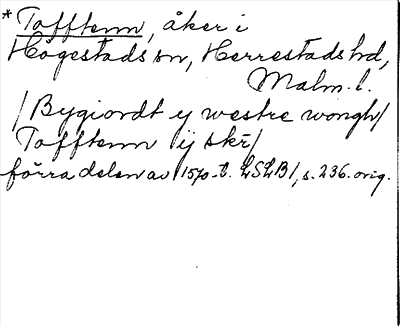 * Tofftenn, åker i
Högestads sn, Herrestads hd,
Malm. l.
/Bygiordt y westre wongh/
Tofftenn ij skr/
förra delen av 1570-t. LSLB/, s. 236. orig.